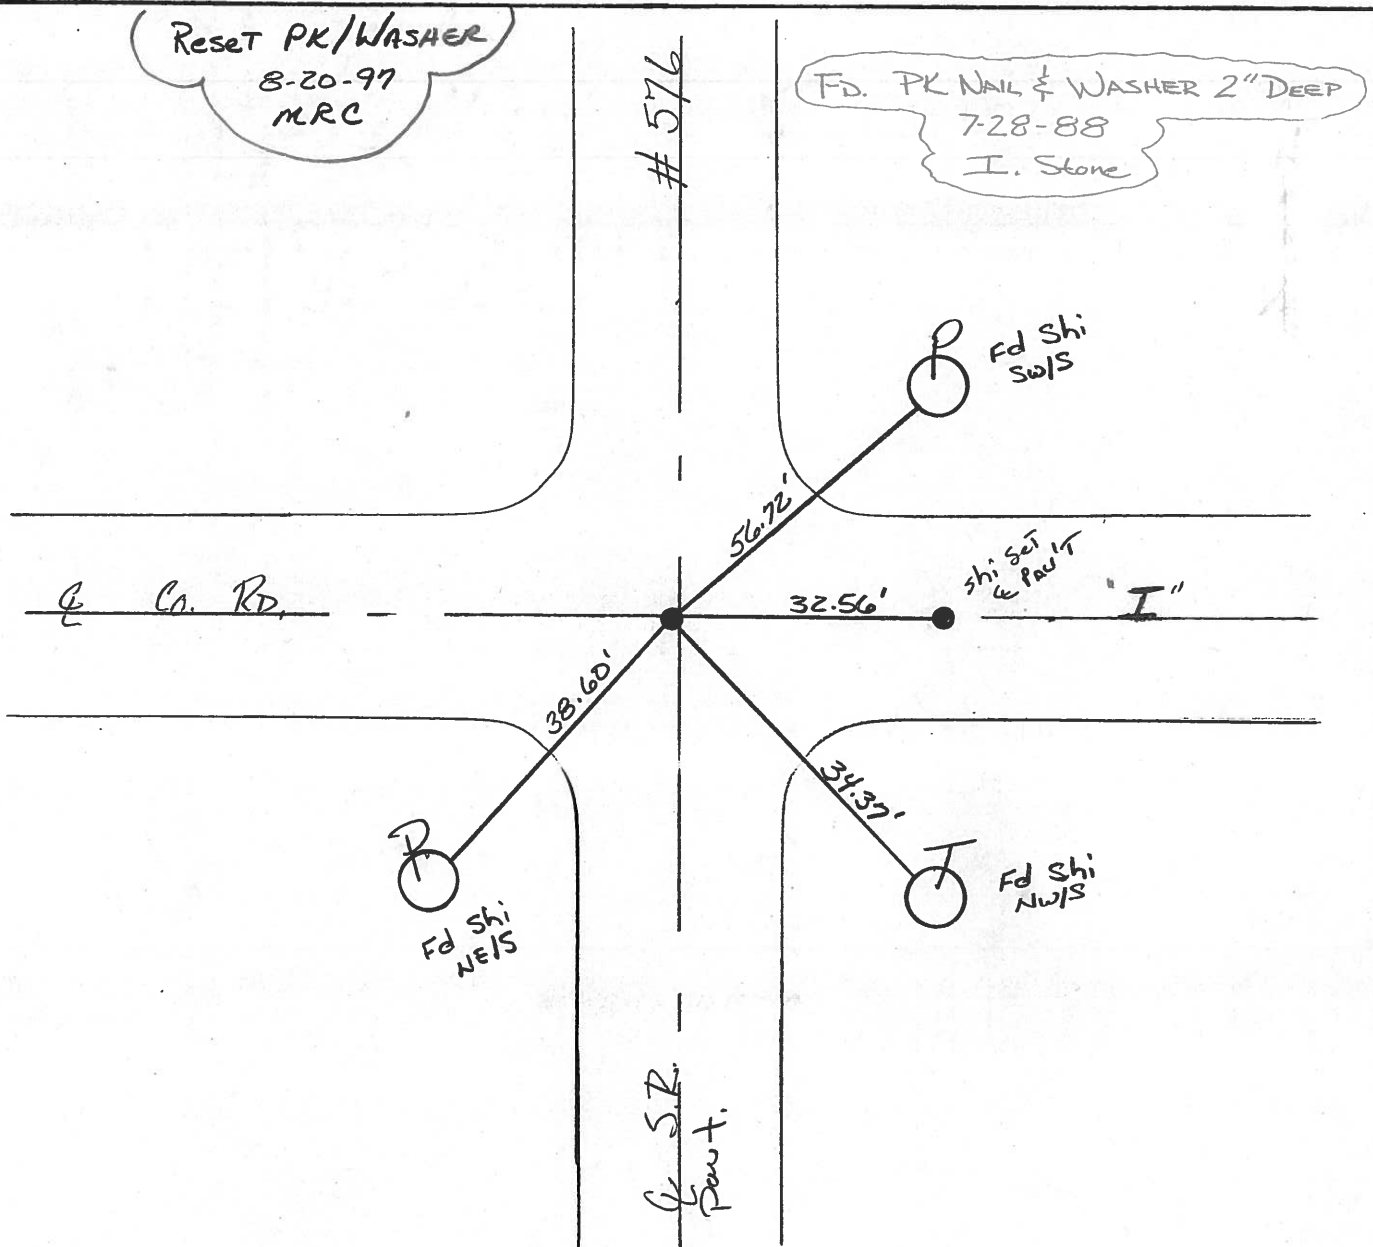 Reset PK/WASHER
8-20-97
MRC
# 576
FD. PK NAIL & WASHER 2" DEEP
7-28-88
I. Stone
P
Fd Shi
SW/S
56.72'
Shi Set
℄ PAV'T
℄ Co. RD.
32.56'
"I"
38.60'
34.37'
P
Fd Shi
NE/S
T
Fd Shi
NW/S
℄ S.R.
Pavt.